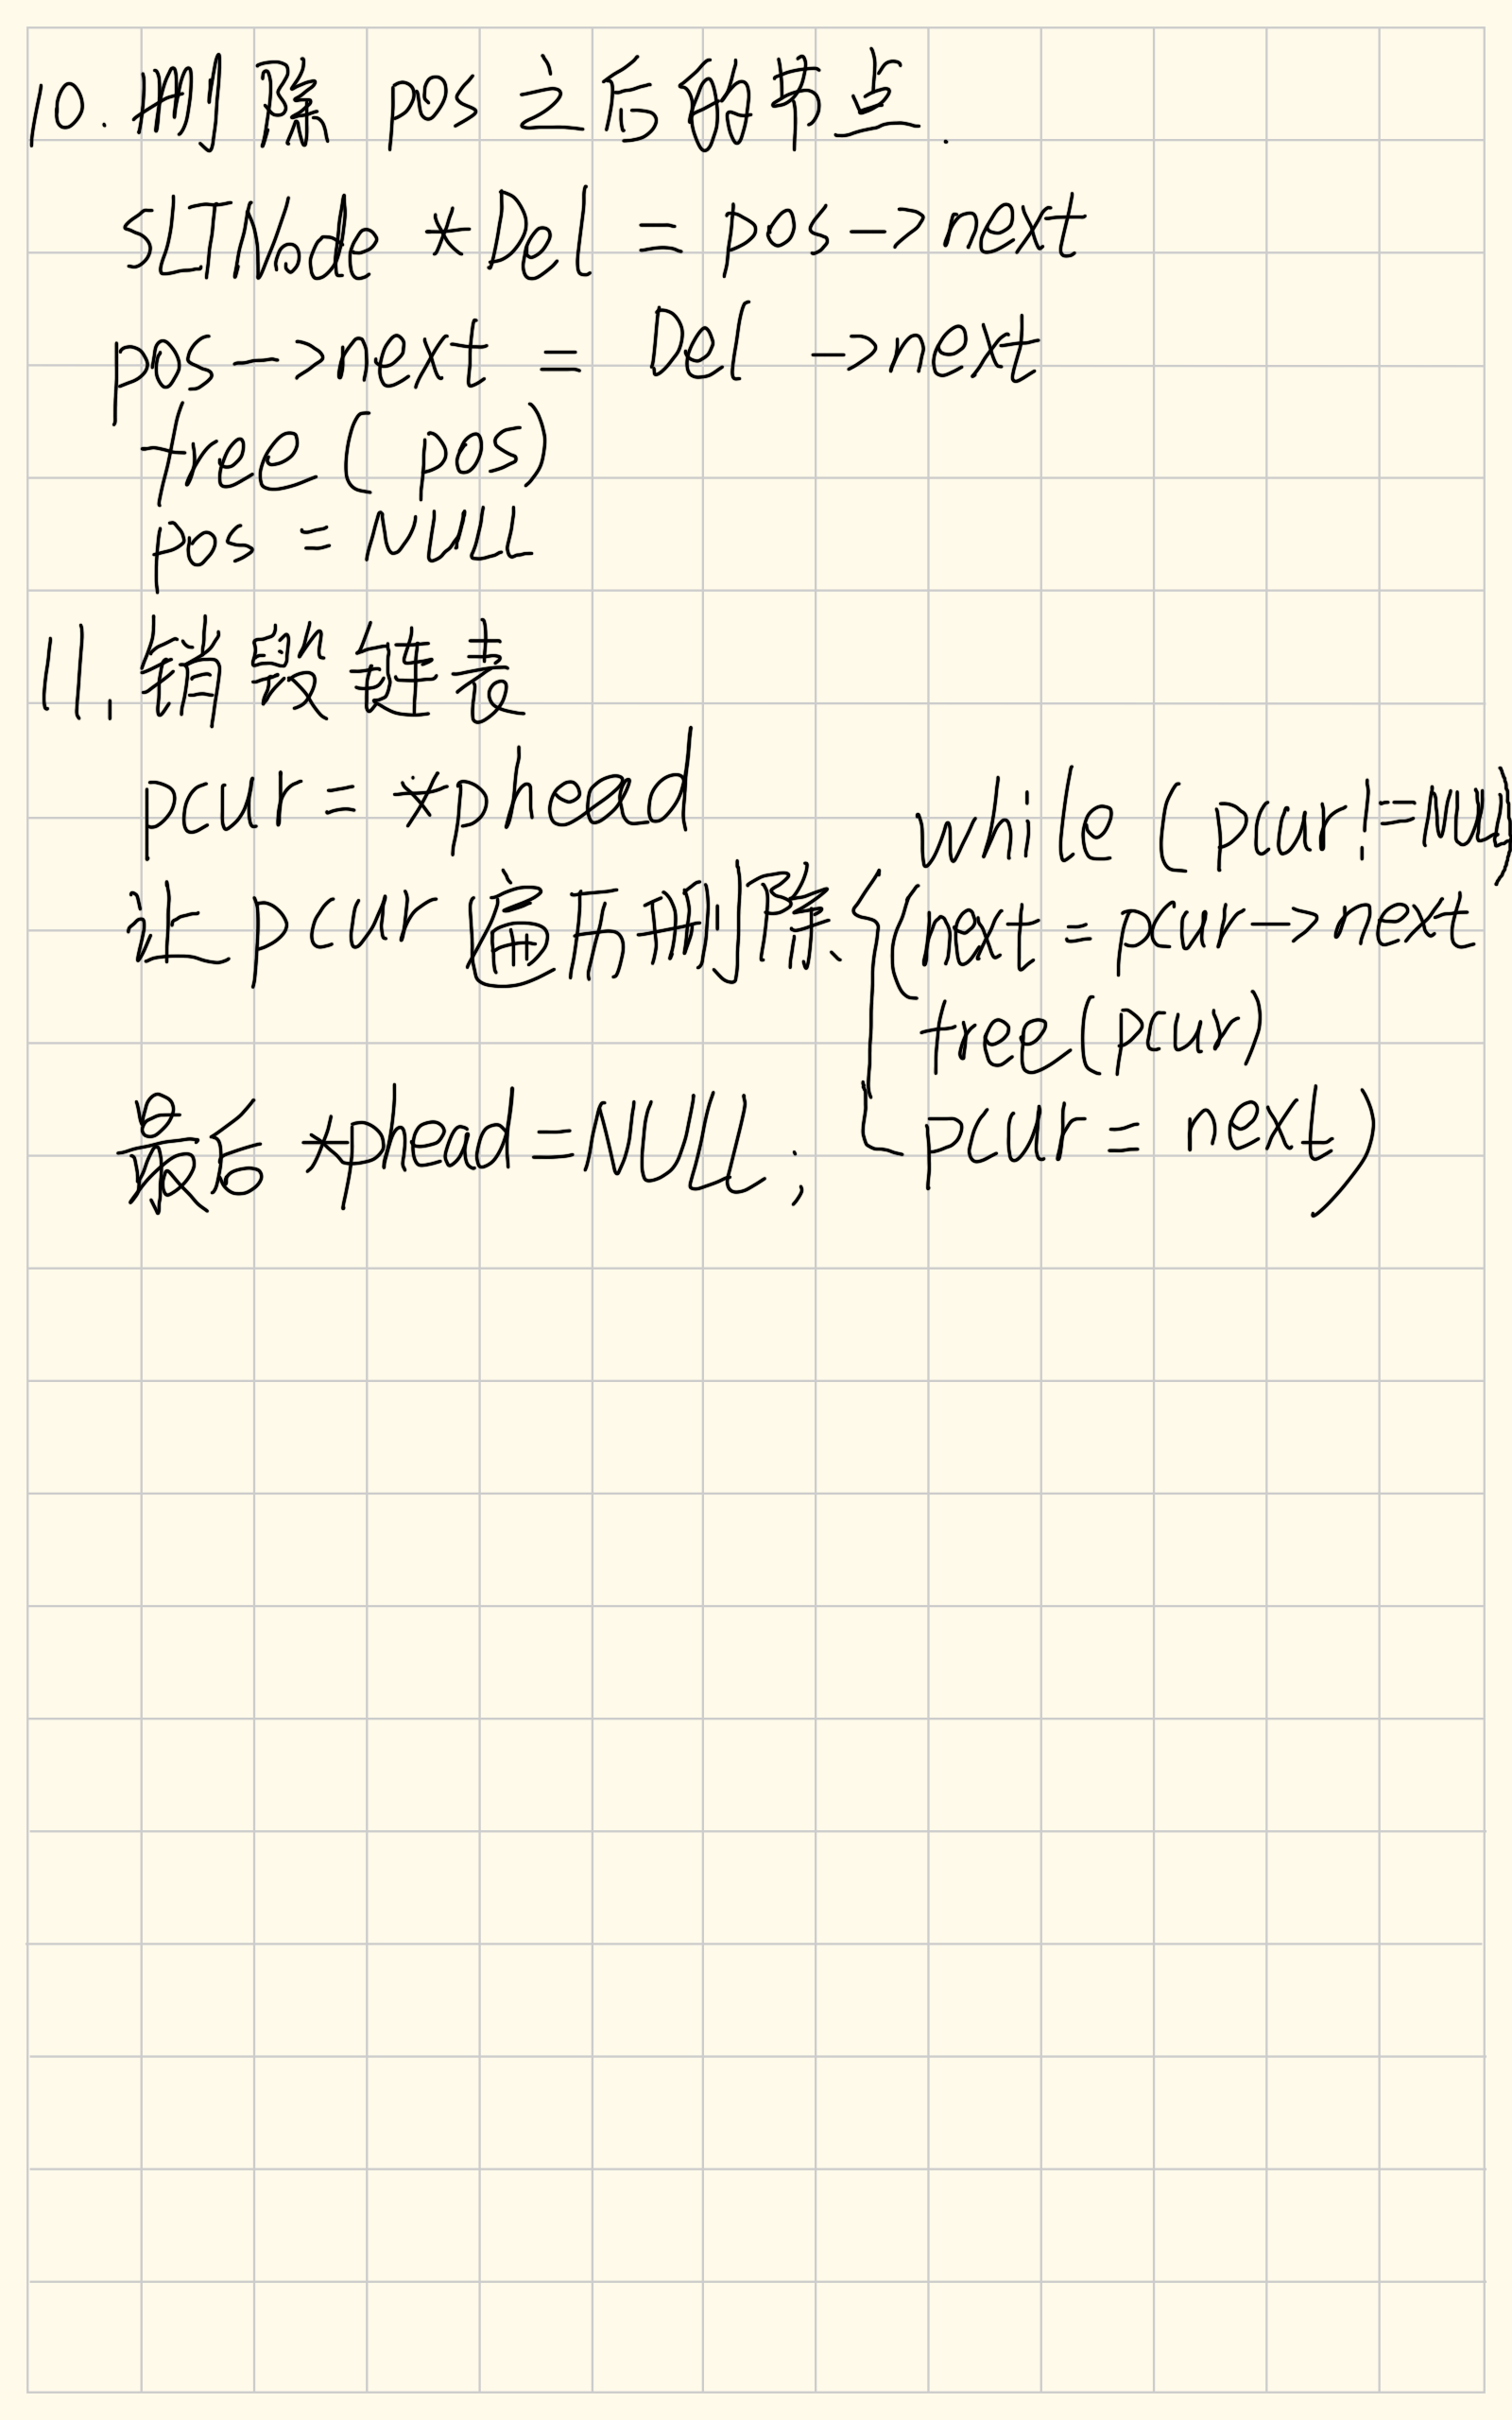 10. 删除 pos 之后的节点.
SLTNode *Del = pos->next
pos->next = Del ->next
tree ( pos)
pos = NULL
11. 销毁链表
pcur = *phead
让 pcur 遍历删除.
最后 *phead = NULL ;
while ( pcur != NULL)
( next = pcur->next
tree (pcur)
pcur = next )